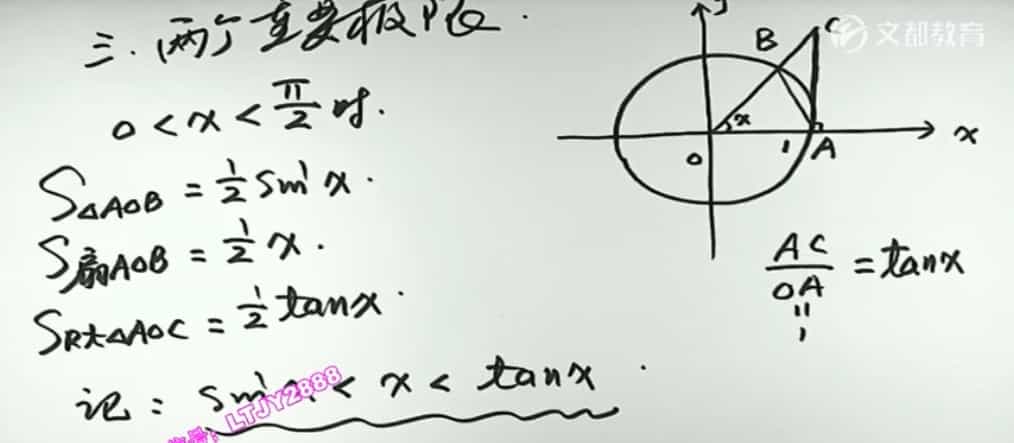 三. 两个重要极限.
0 < x < π/2 时.
S△AOB = 1/2 sin x.
S扇AOB = 1/2 x.
SRt△AOC = 1/2 tanx.
记: sin x < x < tanx.
LTJY2888
y
B
C
文都教育
x
x
o
1
A
AC/OA = tanx
"
1